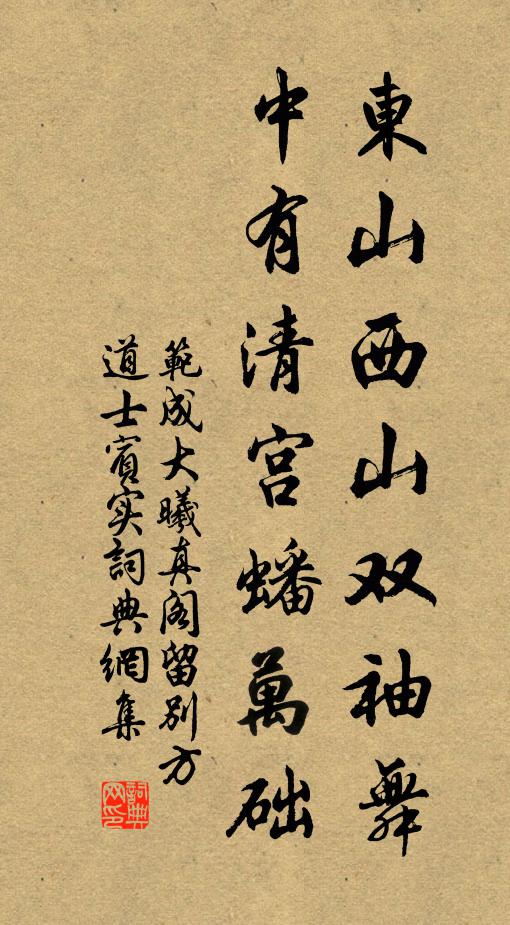 東山西山双袖舞
中有清宫蟠萬础
範成大曦真阁留别方
道士賓实詞典網集
詞典网印